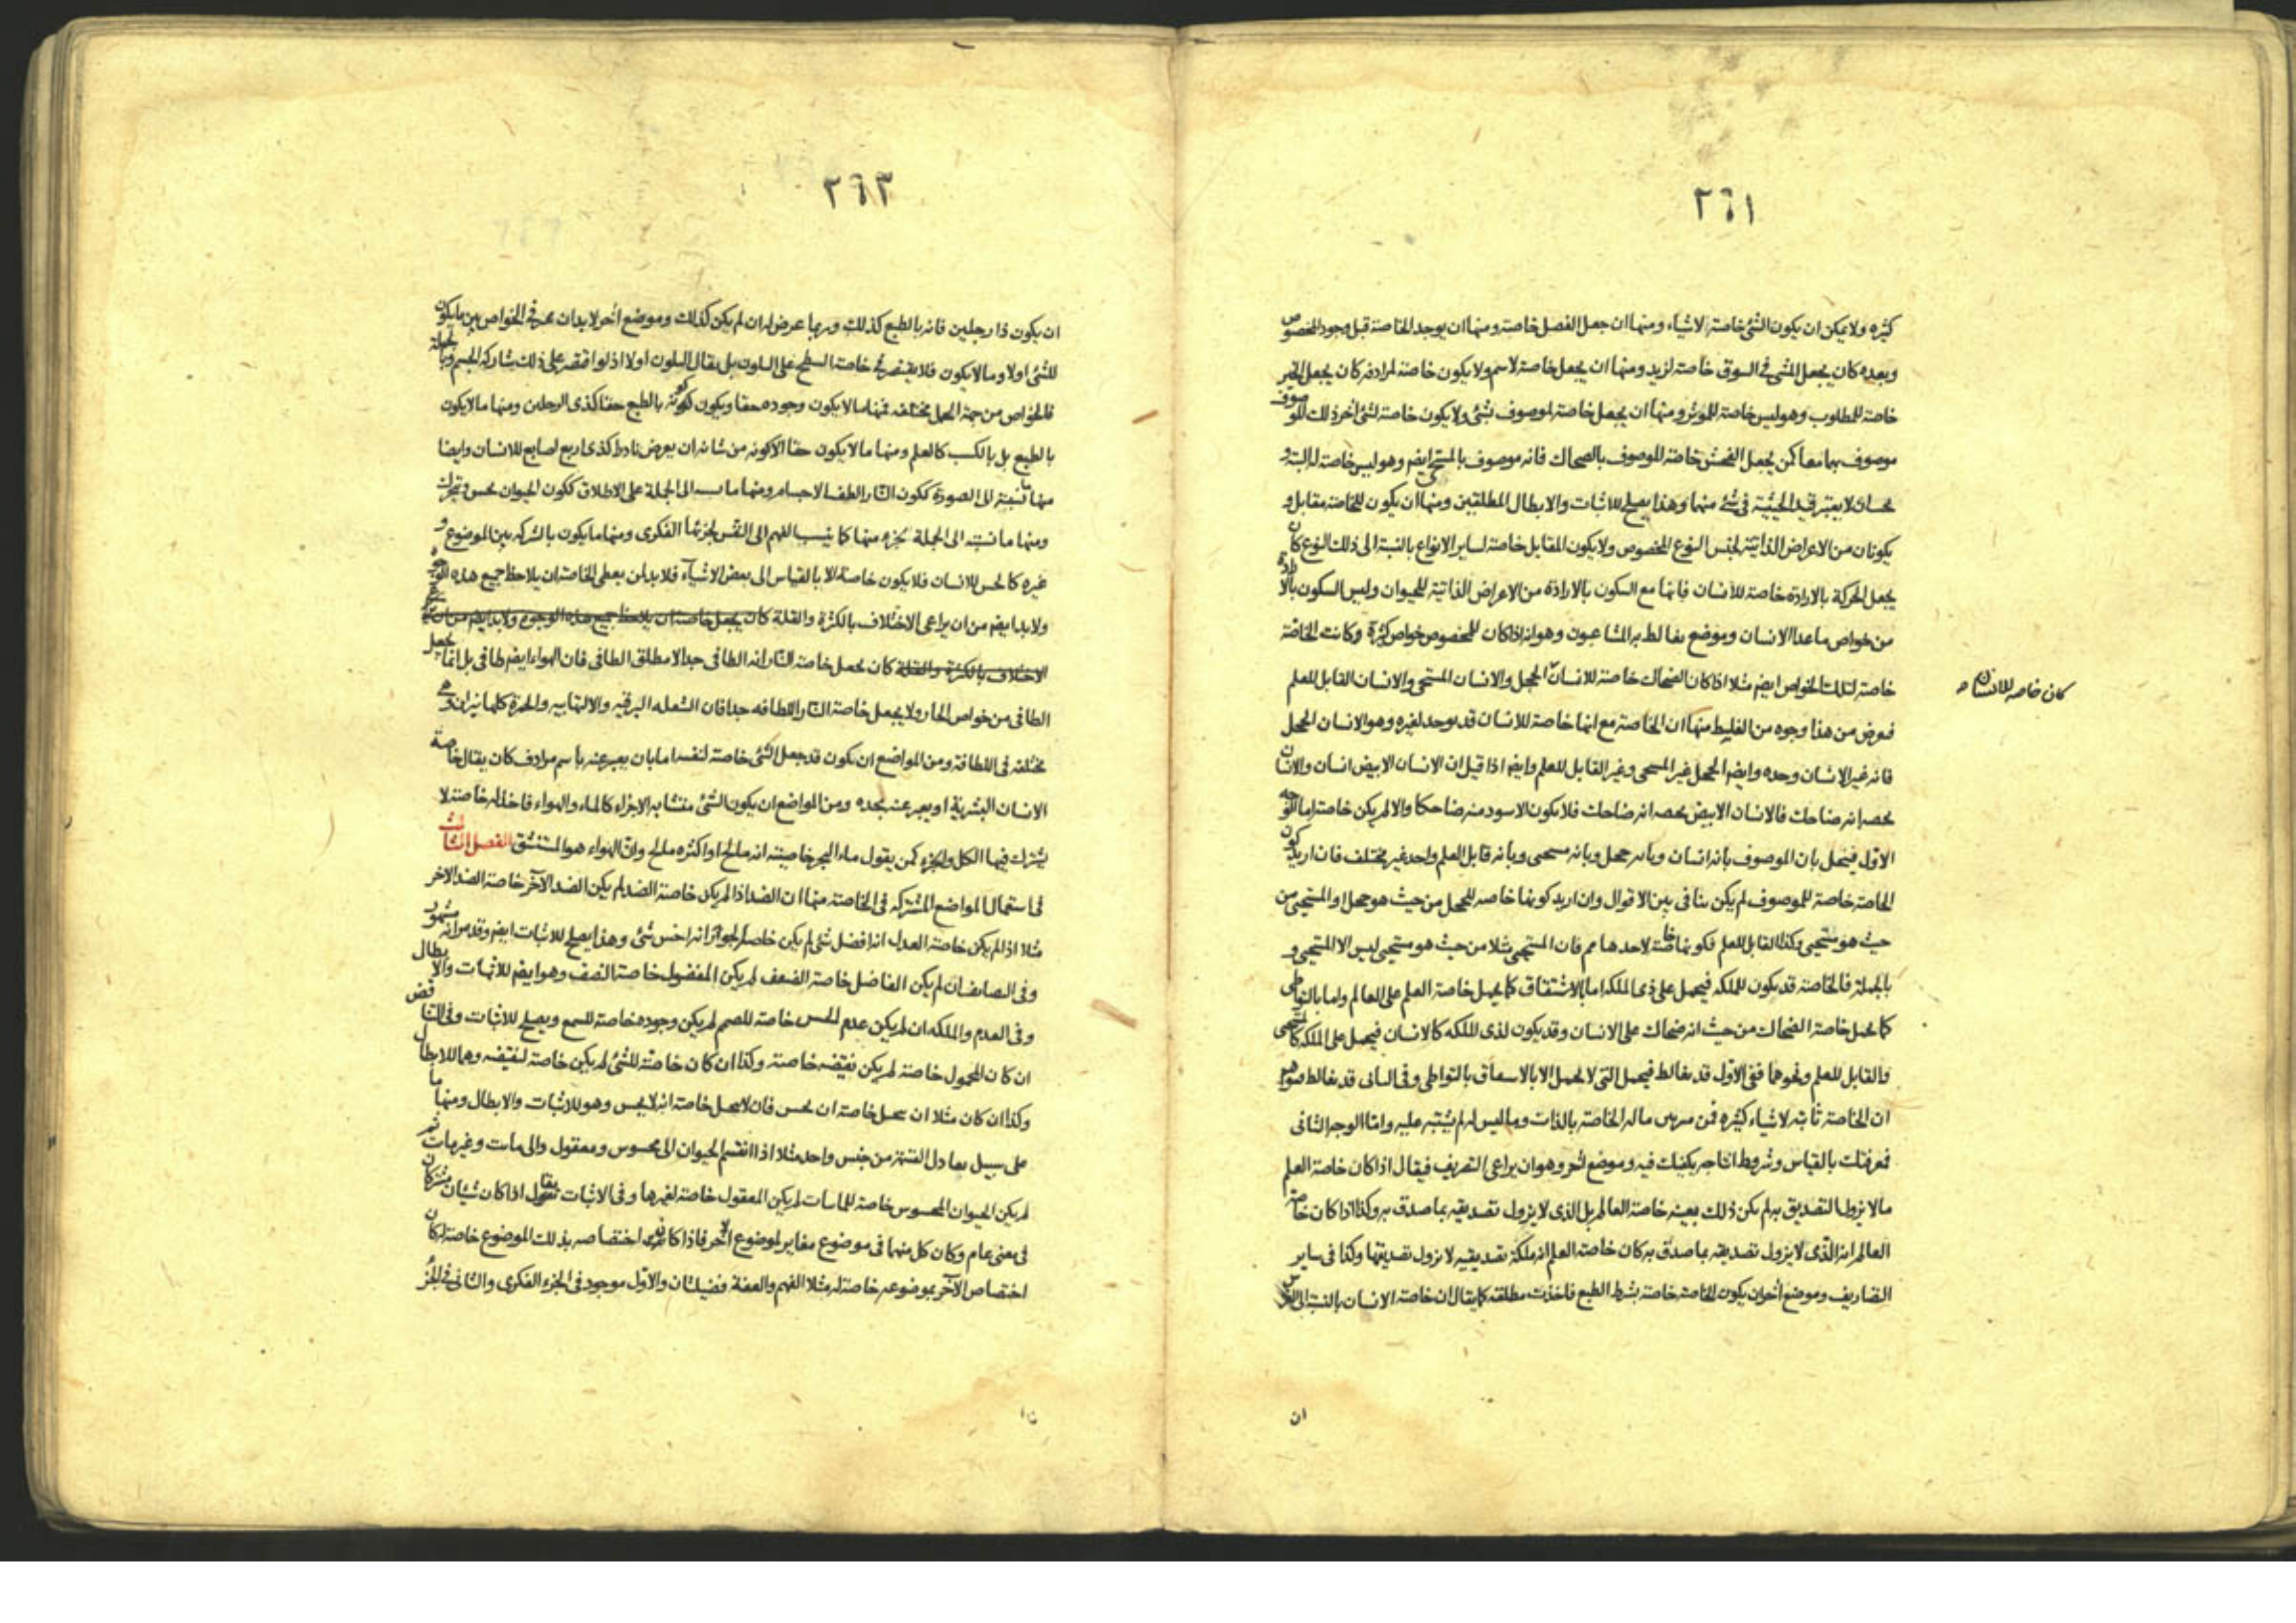 ٢٦١
كثيرة ولا يمكن ان يكون الشئ خاصة لاشياء ومنها ان جعل الفصل خاصة ومنها ان يوجد الخاصة قبل وجود المخصوص
وبعده كان يجعل المشى فى السوق خاصة لزيد ومنها ان يجعل خاصة لاسم ولا يكون خاصة لمرادفه كان يجعل الخير
خاصة للمطلوب وهو ليس خاصة للموثر ومنها ان يجعل خاصة لموصوف بشئ ولا يكون خاصة لشئ آخر ذلك الموصوف
موصوف بهما معا كمن يجعل خاصة للموصوف بالضحاك فانه موصوف بالمستحى ايضم وهو ليس خاصة له البتة و
لا يعتبر قيد الحيثية فى شئ منها وهذا يصلح للاثبات والابطال المطلقين ومنها ان يكون للخاصة مقابل و
يكونان من الاعراض الذاتية لجنس النوع المخصوص ولا يكون المقابل خاصة لساير الانواع بالنسبة الى ذلك النوع كان
يجعل الحركة بالارادة خاصة للانسان فانها مع السكون بالارادة من الاعراض الذاتية للحيوان وليس السكون بالارادة
من خواص ماعدا الانسان وموضع يغالط به المشاغبون وهو انه اذا كان للمخصوص خواص كثيرة وكانت الخاصة
خاصة لتلك الخواص ايضم مثلا اذا كان الضحاك خاصة للانسان الخجل والانسان المستحى والانسان القابل للعلم
كان خاصة للانسان
فعرض من هذا وجوه من الغليط منها ان الخاصة مع انها خاصة للانسان قد يوجد لغيره وهو الانسان الخجل
فانه غير الانسان وحده وايضم الخجل غير المستحى وغير القابل للعلم وايضم اذا قيل ان الانسان الابيض انسان والانسان
يخصه انه ضاحك فالانسان الابيض يخصه انه ضاحك فلا يكون الاسود منه ضاحكا والا لم يكن خاصة اما الوجه
الاول فينحل بان الموصوف بانه انسان وبانه خجل وبانه مستحى وبانه قابل العلم واحد غير مختلف فان اريد بكون
الخاصة خاصة للموصوف لم يكن تنافى بين الاقوال وان اريد كونها خاصة للخجل من حيث هو خجل او المستحيى من
حيث هو مستحيى وكذا القابل للعلم فكونها خاصة لاحدها مم فان المستحيى مثلا من حيث هو مستحيى ليس الا المستحيى و
بالجملة فالخاصة قد يكون للملكة فيحمل على ذى الملكة اما بالاشتقاق كما يحمل خاصة العلم على العالم واما بالتواطى
كما يحمل خاصة الضحاك من حيث انه ضحاك على الانسان وقد يكون لذى الملكة كالانسان فيحمل على الملكة كالمستحيى
والقابل للعلم ونحوهما ففى الاول قد يغالط فيحمل التى لا يحمل الا بالاشتقاق بالتواطى وفى الثانى قد يغالط
ان الخاصة ثابتة لاشياء كثيرة فمن ماله الخاصة بالذات وما ليس له لم يشتبه عليه واما الوجه الثانى
فعرفتك بالقياس وشروط انتاجه يكفيك فيه وموضع آخر وهو ان يراعى التصريف فيقال اذا كان خاصة العلم
مالا يزول التصديق به لم يكن ذلك بعينه خاصة العالم بل الذى لا يزول تصديقه بما صدق به وكذا اذا كان خاصة
العالم انه الذى لا يزول تصديقه بما صدق به كان خاصة العلم انه ملكة تصديقيه لا يزول تصديقها وكذا فى ساير
التصاريف وموضع آخر ان يكون الخاصة خاصة بشرط الطبع فاخذت مطلقة كما يقال ان خاصة الانسان بالنسبة الى
ان
٢٦٣
ان يكون ذا رجلين فانه بالطبع كذلك وربما عرض له ان لم يكن كذلك وموضع آخر لابد ان فى الخواص بين ما يكون
للشئ اولا وما لا يكون فلا يقتصر فى خاصة السطح على الملون بل يقال الملون اولا اذ لو اقتصر على ذلك شاركه الجسم وبالجملة
فالخواص من جهة الحمل مختلفة فمنها ما لا يكون وجوده حقا ويكون كونه بالطبع حقا كذى الرجلين ومنها ما لا يكون
بالطبع بل بالكسب كالعلم ومنها ما لا يكون حقا الا كونه من شانه ان يعرض نادرا كذى اربع اصابع للانسان وايضا
منها ما نسبته الى الصورة ككون النار الطف الاجسام ومنها ما نسبته الى الجملة على الاطلاق ككون الحيوان يحس ويتحرك
ومنها ما نسبته الى الجملة بجزء منها كما ينسب الفهم الى النفس لجزئها الفكرى ومنها ما يكون بالشركة بين الموضوع و
غيره كالحس للانسان فلا يكون خاصة الا بالقياس الى بعض الاشياء فلابد لمن يعطى الخاصة ان يلاحظ جميع هذه الوجوه
ولابد ايضم من ان يراعى الاختلاف بالكثرة والقلة كان يجعل خاصة ان يلاحظ جميع هذه الوجوه ولابد ايضم من ان يراعى
الاختلاف بالكثرة والقلة كان يجعل خاصة النار انه الطافى جدا لا مطلق الطافى فان الهواء ايضم طافى بل انما يجعل
الطافى من خواص الحار ولا يجعل خاصة النار اللطافه جدا فان الشعلة البرقيه والالتهابيه والجمرة كلها نيران وهى
مختلفه فى اللطافة ومن المواضع ان يكون قد جعل الشئ خاصة لنفسه اما بان يعبر عنه باسم مرادف كان يقال خاصة
الانسان البشرية او يعبر عنه بحده ومن المواضع ان يكون الشئ متشابه الاجزاء كالماء والهواء فاخذ له خاصة لا
يشترك فيها الكل والجزء كمن يقول ماء البحر خاصيته انه مالح او اكثره مالح وان الهواء هو المستنشق الفصل الثالث
فى استعمال المواضع المشتركة فى الخاصة منها ان الضد اذا لم يكن خاصة الضد لم يكن الضد الآخر خاصة الضد الاخر
مثلا اذا لم يكن خاصة العدل انه افضل شئ لم يكن خاصة الجور انه اخس شئ وهذا يصلح للاثبات ايضم وقد مر انه مشهور
وفى المضايف ان لم يكن الفاضل خاصة الضعف لم يكن المفضول خاصة النصف وهو ايضم للاثبات والابطال
وفى العدم والملكه ان لم يكن عدم الحس خاصة للصمم لم يكن وجوده خاصة للسمع ويصلح للاثبات وفى التناقض
ان كان المحمول خاصة لم يكن نقيضه خاصته وكذا ان كان خاصة للشئ لم يكن خاصة لنقيضه وهما للابطال
وكذا ان كان مثلا ان يحمل خاصة ان يحس فان لا يحمل خاصة انه لا يحس وهو للاثبات والابطال ومنها ما
على سبيل تعادل القسمة من جنس واحد مثلا اذا انقسم الحيوان الى محسوس ومعقول والى مائت وغير مائت ثم
لم يكن الحيوان المحسوس خاصة للمائت لم يكن المعقول خاصة لغيرها وفى الاثبات نقول اذا كان شيئان مشتركان
فى معنى عام وكان كل منهما فى موضوع مغاير لموضوع الاخر فاذا كان اختصاصه بذلك الموضوع خاصة له كان
اختصاص الآخر بموضوعه خاصة له مثلا الفهم والعفة فضيلتان والاول موجود فى الجزء الفكرى والثانى فى الجزء